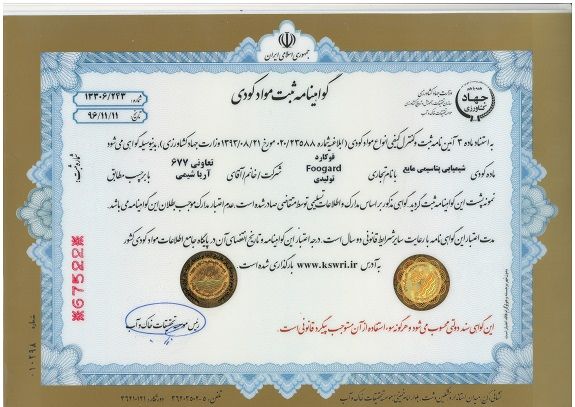 جمهوری اسلامی ایران
وزارت جهاد کشاورزی
جهاد
کشاورزی
گواهینامه ثبت مواد کودی
شماره: ۱۳۳۰۶/۲۴۳
تاریخ: ۹۶/۱۱/۱۱
به استناد ماده ۳ آئین نامه ثبت و کنترل کیفی انواع مواد کودی (ابلاغیه شماره ۰۲۰/۲۳۵۸۸ مورخ ۱۳۹۳/۰۸/۲۱ وزارت جهاد کشاورزی)، بدینوسیله گواهی می شود
ماده کودی شیمیایی پتاسیمی مایع با نام تجاری فوگارد Foogard تولیدی شرکت/خانم/آقای تعاونی ۶۷۷ آریا شیمی با برچسب مطابق
نمونه پشت این گواهینامه ثبت گردید. گواهی مذکور بر اساس مدارک و اطلاعات تسلیمی توسط متقاضی صادر شده است. عدم اعتبار مدارک موجب بطلان این گواهینامه می باشد.
مدت اعتبار این گواهی نامه با رعایت سایر شرایط قانونی دو سال است. درجه اعتبار این گواهینامه و تاریخ انقضای آن در پایگاه جامع اطلاعات مواد کودی کشور
به آدرس www.kswri.ir بارگذاری شده است.
شماره ثبت:
67522
رئیس موسسه تحقیقات خاک و آب
این گواهی سند دولتی محسوب می شود و هرگونه سوء استفاده از آن مستوجب پیگرد قانونی است.
شماره ۰۱۰۲۹۸